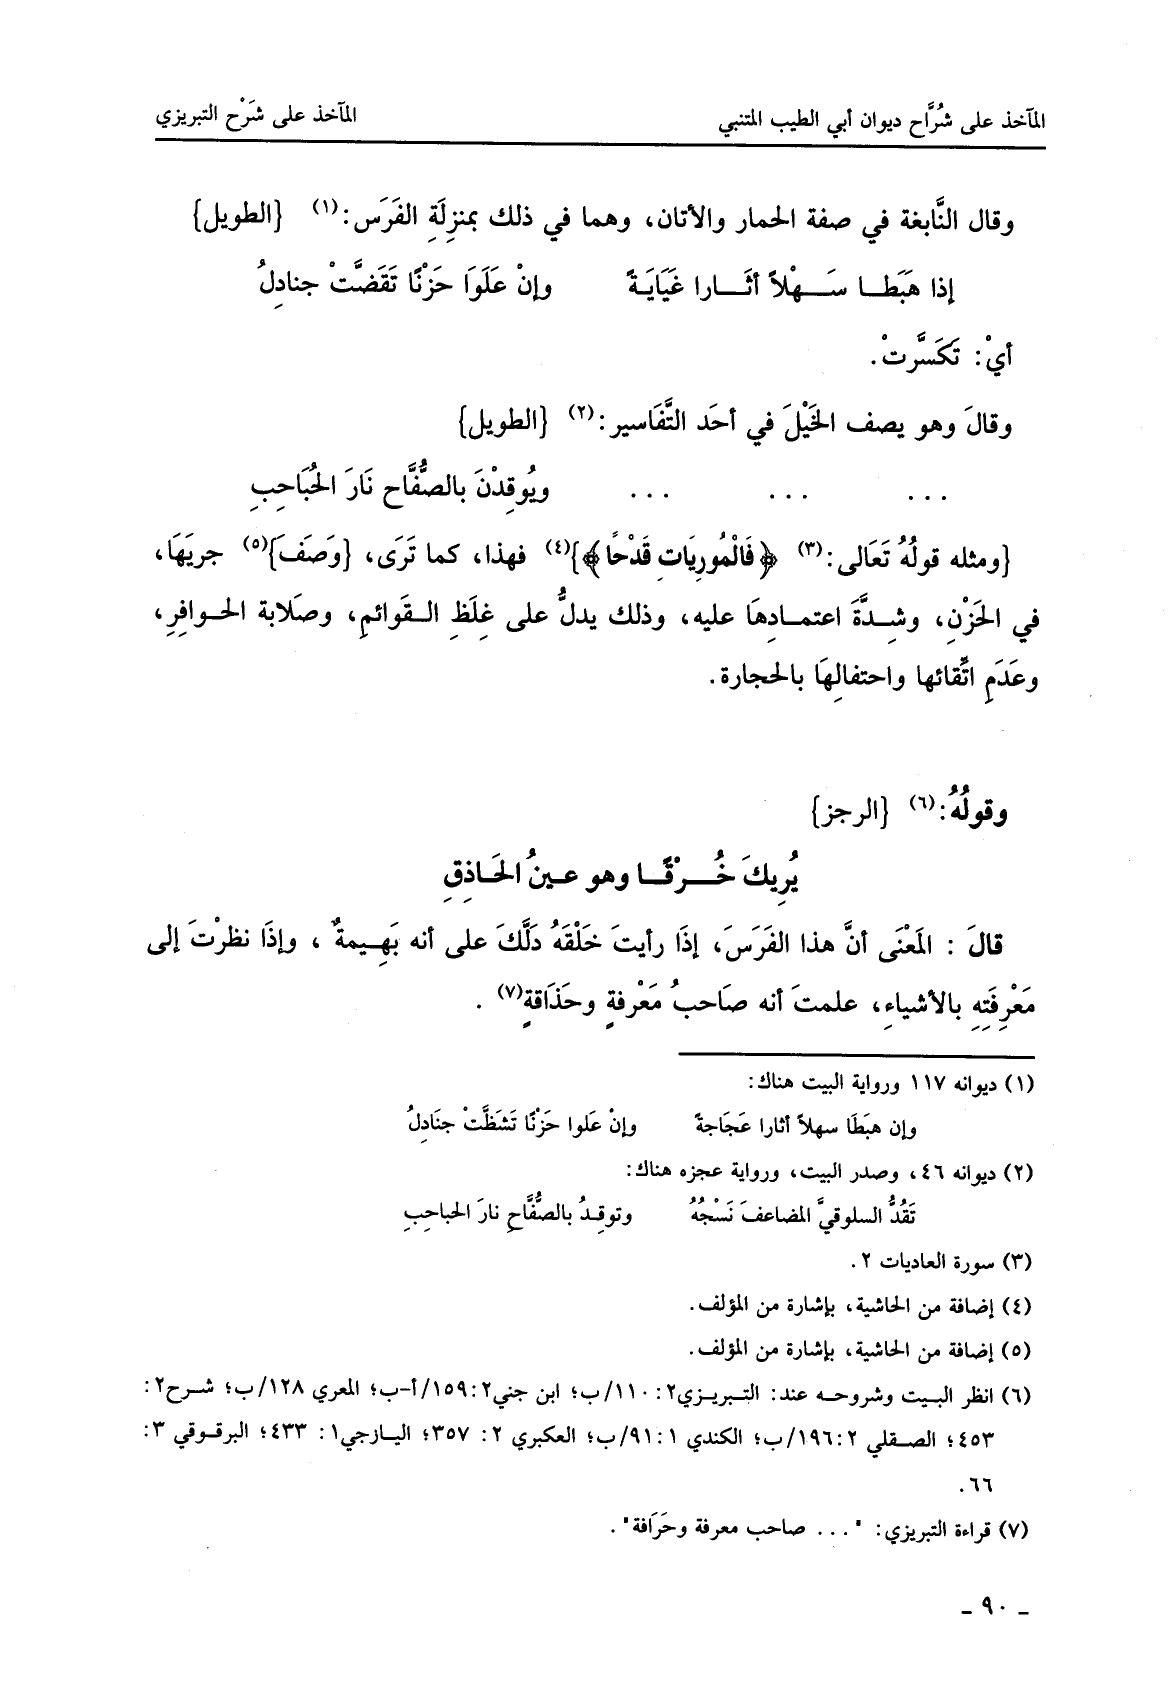 المآخذ على شُرَّاح ديوان أبي الطيب المتنبي المآخذ على شَرْح التبريزي
وقال النَّابغة في صفة الحمار والأتان، وهما في ذلك بمنزِلَةِ الفَرَس:(١) {الطويل}
إذا هَبَطــا سَــهْلاً أثَــارا غَيَايَـةً وإنْ عَلَوَا حَزْنًا تَقَضَّتْ جنادِلُ
أيْ: تَكَسَّرتْ.
وقالَ وهو يصف الخَيْلَ في أحَد التَّفَاسير:(٢) {الطويل}
... ... ... ويُوقِدْنَ بالصُّفَّاح نَارَ الحُبَاحِبِ
{ومثله قولُهُ تَعَالى:(٣) ﴿فَالْمُورِيَاتِ قَدْحًا﴾}(٤) فهذا، كما تَرَى، {وَصَفَ}(٥) جريَهَا،
في الحَزْنِ، وشِـدَّةَ اعتمـادِهَا عليه، وذلك يدلُّ على غِلَظِ القَوائمِ، وصَلابة الحـوافِرِ،
وعَدَمِ اتِّقائها واحتفالِهَا بالحجارة.
وقولُهُ:(٦) {الرجز}
يُرِيكَ خُــرْقًــا وهو عـينُ الحَـاذِقِ
قالَ : المَعْنَى أنَّ هذا الفَرَسَ، إذَا رأيتَ خَلْقَهُ دَلَّكَ على أنه بَهِـيمةٌ ، وإذَا نظرْتَ إلى
مَعْرِفَتِهِ بالأشياءِ، علمتَ أنه صَاحبُ مَعْرفةٍ وحَذَاقةٍ(٧) .
(١) ديوانه ١١٧ ورواية البيت هناك:
وإن هبَطَا سهلاً أثارا عَجَاجةً وإنْ عَلوا حَزْنًا تَشَظَّتْ جنَادِلُ
(٢) ديوانه ٤٦، وصدر البيت، ورواية عجزه هناك:
تَقُدُّ السلوقيَّ المضاعفَ نَسْجُهُ وتوقِـدُ بالصُّفَّاحِ نارَ الحباحِبِ
(٣) سورة العاديات ٢.
(٤) إضافة من الحاشية، بإشارة من المؤلف.
(٥) إضافة من الحاشية، بإشارة من المؤلف.
(٦) انظر البـيت وشروحـه عند: التـبريـزي٢: ١١٠/ب؛ ابن جني٢: ١٥٩/أ-ب؛ المعري ١٢٨/ب؛ شـرح٢:
٤٥٣؛ الصـقلي ٢: ١٩٦/ب؛ الكندي ١: ٩١/ب؛ العكبري ٢: ٣٥٧؛ اليـازجي١: ٤٣٣؛ البرقـوقي ٣:
٦٦.
(٧) قراءة التبريزي: "... صاحب معرفة وحَرَافة".
- ٩٠ -